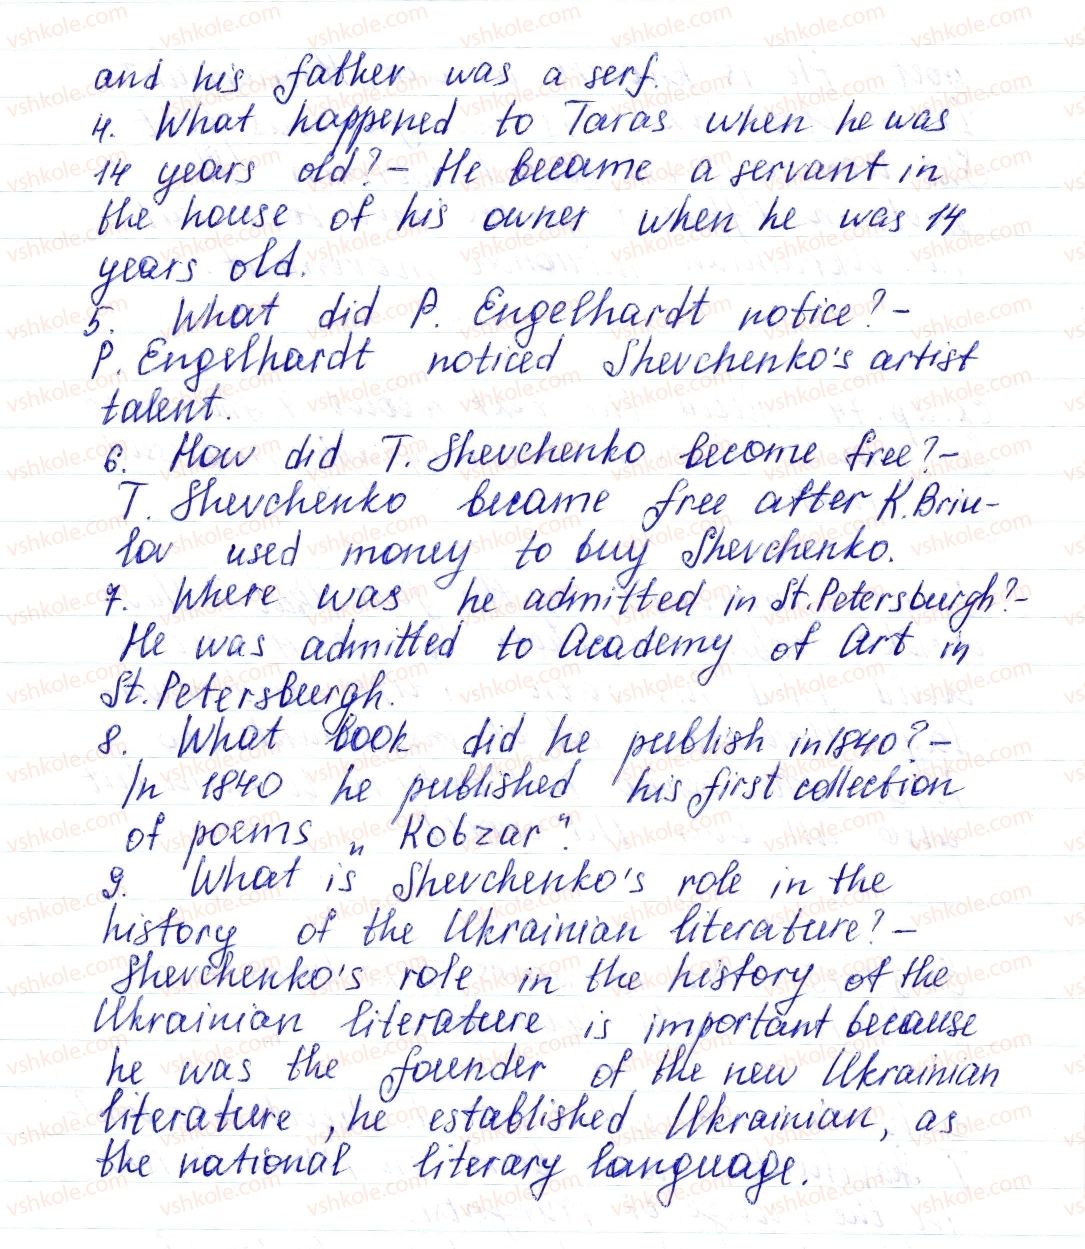 and his father was a serf.
4. What happened to Taras when he was
14 years old? – He became a servant in
the house of his owner when he was 14
years old.
5. What did P. Engelhardt notice? –
P. Engelhardt noticed Shevchenko's artist
talent.
6. How did T. Shevchenko become free? –
T. Shevchenko became free after K. Briu-
lov used money to buy Shevchenko.
7. Where was he admitted in St. Petersburgh? –
He was admitted to Academy of Art in
St. Petersburgh.
8. What book did he publish in 1840? –
In 1840 he published his first collection
of poems „Kobzar".
9. What is Shevchenko's role in the
history of the Ukrainian literature? –
Shevchenko's role in the history of the
Ukrainian literature is important because
he was the founder of the new Ukrainian
literature, he established Ukrainian, as
the national literary language.